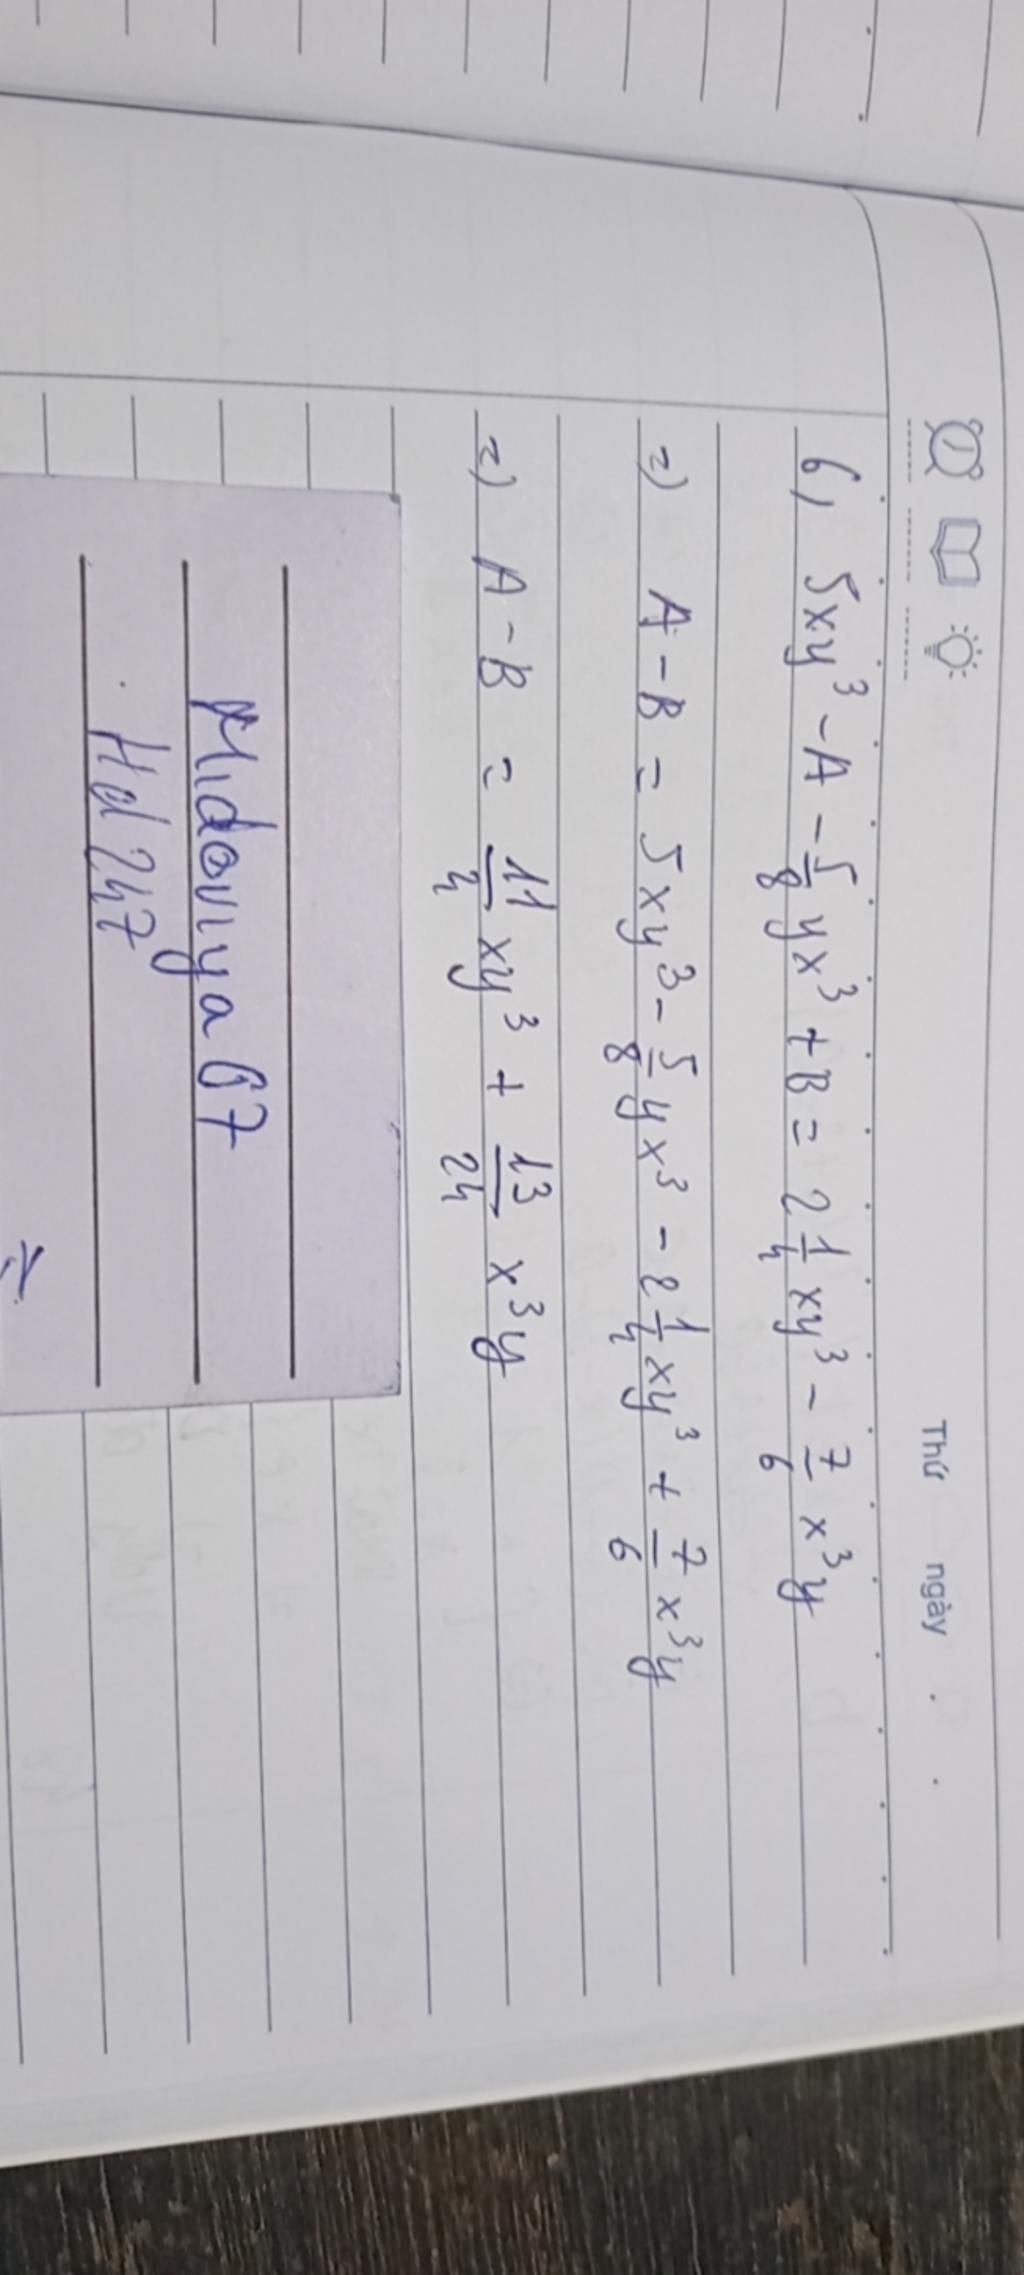 Thứ ngày . .
6, 5xy³ - A - 5/8 yx³ + B = 2 1/4 xy³ - 7/6 x³y
=) A - B = 5xy³ - 5/8 yx³ - 2 1/4 xy³ + 7/6 x³y
=) A - B = 11/4 xy³ + 13/24 x³y
Midoviya67
Hd 247